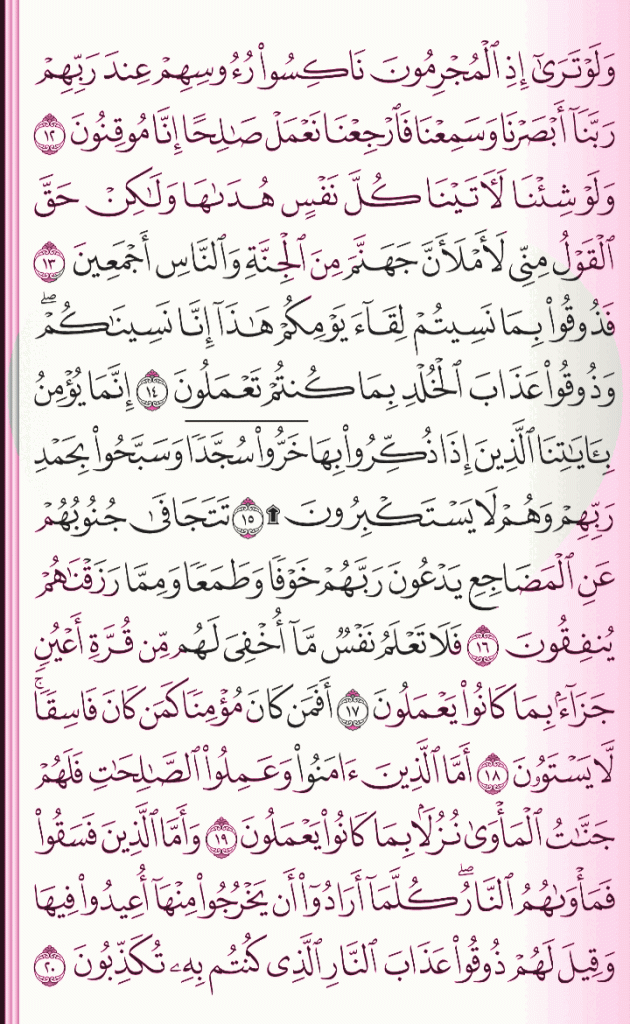 وَلَوْ تَرَىٰٓ إِذِ ٱلْمُجْرِمُونَ نَاكِسُوا۟ رُءُوسِهِمْ عِندَ رَبِّهِمْ
رَبَّنَآ أَبْصَرْنَا وَسَمِعْنَا فَٱرْجِعْنَا نَعْمَلْ صَـٰلِحًا إِنَّا مُوقِنُونَ ١٢
وَلَوْ شِئْنَا لَـَٔاتَيْنَا كُلَّ نَفْسٍ هُدَىٰهَا وَلَـٰكِنْ حَقَّ
ٱلْقَوْلُ مِنِّى لَأَمْلَأَنَّ جَهَنَّمَ مِنَ ٱلْجِنَّةِ وَٱلنَّاسِ أَجْمَعِينَ ١٣
فَذُوقُوا۟ بِمَا نَسِيتُمْ لِقَآءَ يَوْمِكُمْ هَـٰذَآ إِنَّا نَسِينَـٰكُمْ ۖ
وَذُوقُوا۟ عَذَابَ ٱلْخُلْدِ بِمَا كُنتُمْ تَعْمَلُونَ ١٤ إِنَّمَا يُؤْمِنُ
بِـَٔايَـٰتِنَا ٱلَّذِينَ إِذَا ذُكِّرُوا۟ بِهَا خَرُّوا۟ سُجَّدًا وَسَبَّحُوا۟ بِحَمْدِ
رَبِّهِمْ وَهُمْ لَا يَسْتَكْبِرُونَ ۩ ١٥ تَتَجَافَىٰ جُنُوبُهُمْ
عَنِ ٱلْمَضَاجِعِ يَدْعُونَ رَبَّهُمْ خَوْفًا وَطَمَعًا وَمِمَّا رَزَقْنَـٰهُمْ
يُنفِقُونَ ١٦ فَلَا تَعْلَمُ نَفْسٌ مَّآ أُخْفِىَ لَهُم مِّن قُرَّةِ أَعْيُنٍ
جَزَآءًۢ بِمَا كَانُوا۟ يَعْمَلُونَ ١٧ أَفَمَن كَانَ مُؤْمِنًا كَمَن كَانَ فَاسِقًا ۚ
لَّا يَسْتَوُۥنَ ١٨ أَمَّا ٱلَّذِينَ ءَامَنُوا۟ وَعَمِلُوا۟ ٱلصَّـٰلِحَـٰتِ فَلَهُمْ
جَنَّـٰتُ ٱلْمَأْوَىٰ نُزُلًۢا بِمَا كَانُوا۟ يَعْمَلُونَ ١٩ وَأَمَّا ٱلَّذِينَ فَسَقُوا۟
فَمَأْوَىٰهُمُ ٱلنَّارُ ۖ كُلَّمَآ أَرَادُوٓا۟ أَن يَخْرُجُوا۟ مِنْهَآ أُعِيدُوا۟ فِيهَا
وَقِيلَ لَهُمْ ذُوقُوا۟ عَذَابَ ٱلنَّارِ ٱلَّذِى كُنتُم بِهِۦ تُكَذِّبُونَ ٢٠